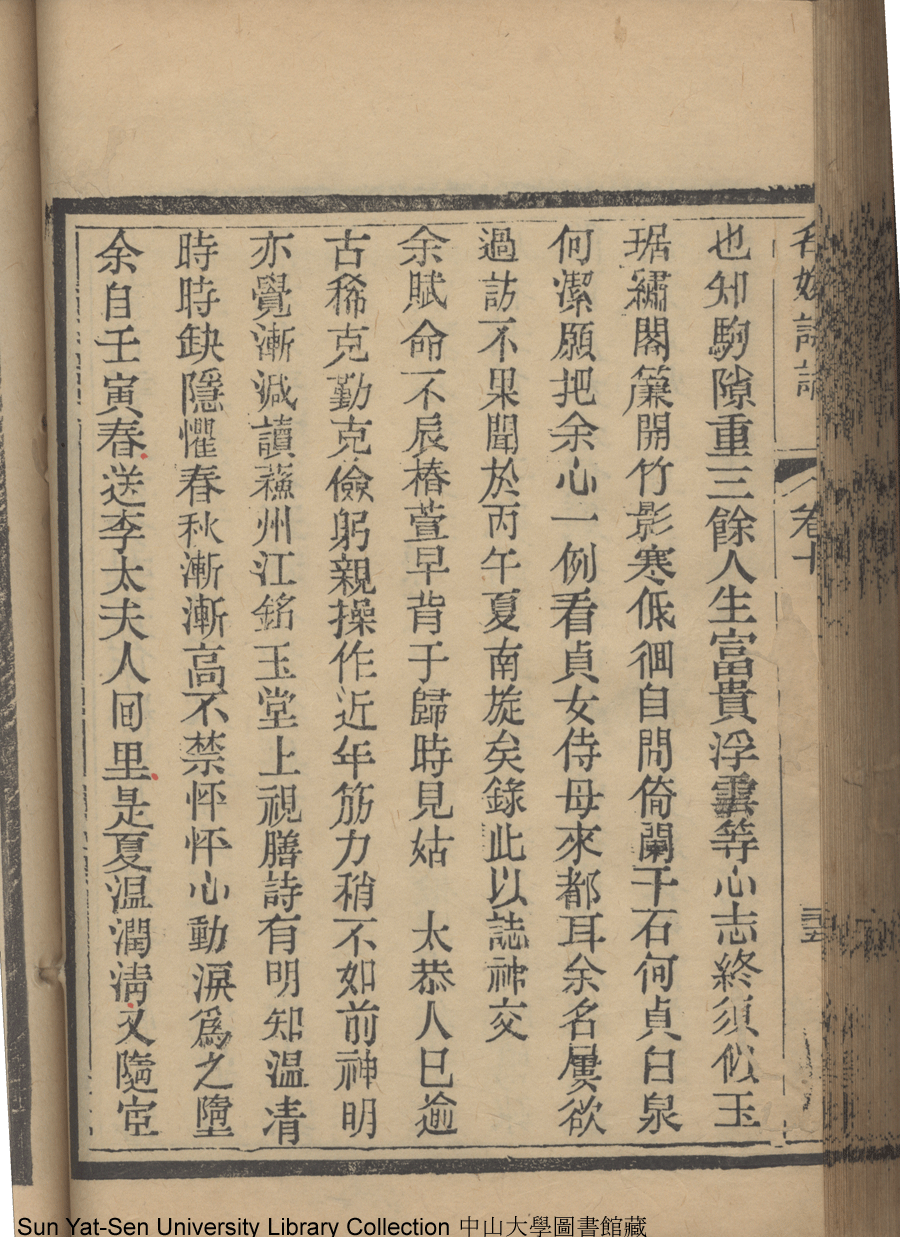 名媛詩話 卷十
也知駒隙重三餘人生富貴浮雲等心志終須似玉
琚繡閣簾開竹影寒低徊自問倚闌干石何貞白泉
何潔願把余心一例看貞女侍母來都耳余名屢欲
過訪不果聞於丙午夏南旋矣錄此以誌神交
余賦命不辰椿萱早背于歸時見姑 太恭人巳逾
古稀克勤克儉躬親操作近年筋力稍不如前神明
亦覺漸減讀蘓州江銘玉堂上視膳詩有明知温凊
時時缺隱懼春秋漸漸高不禁怦怦心動淚爲之墮
余自壬寅春送李太夫人回里是夏温潤淸又隨宦
Sun Yat-Sen University Library Collection 中山大學圖書館藏